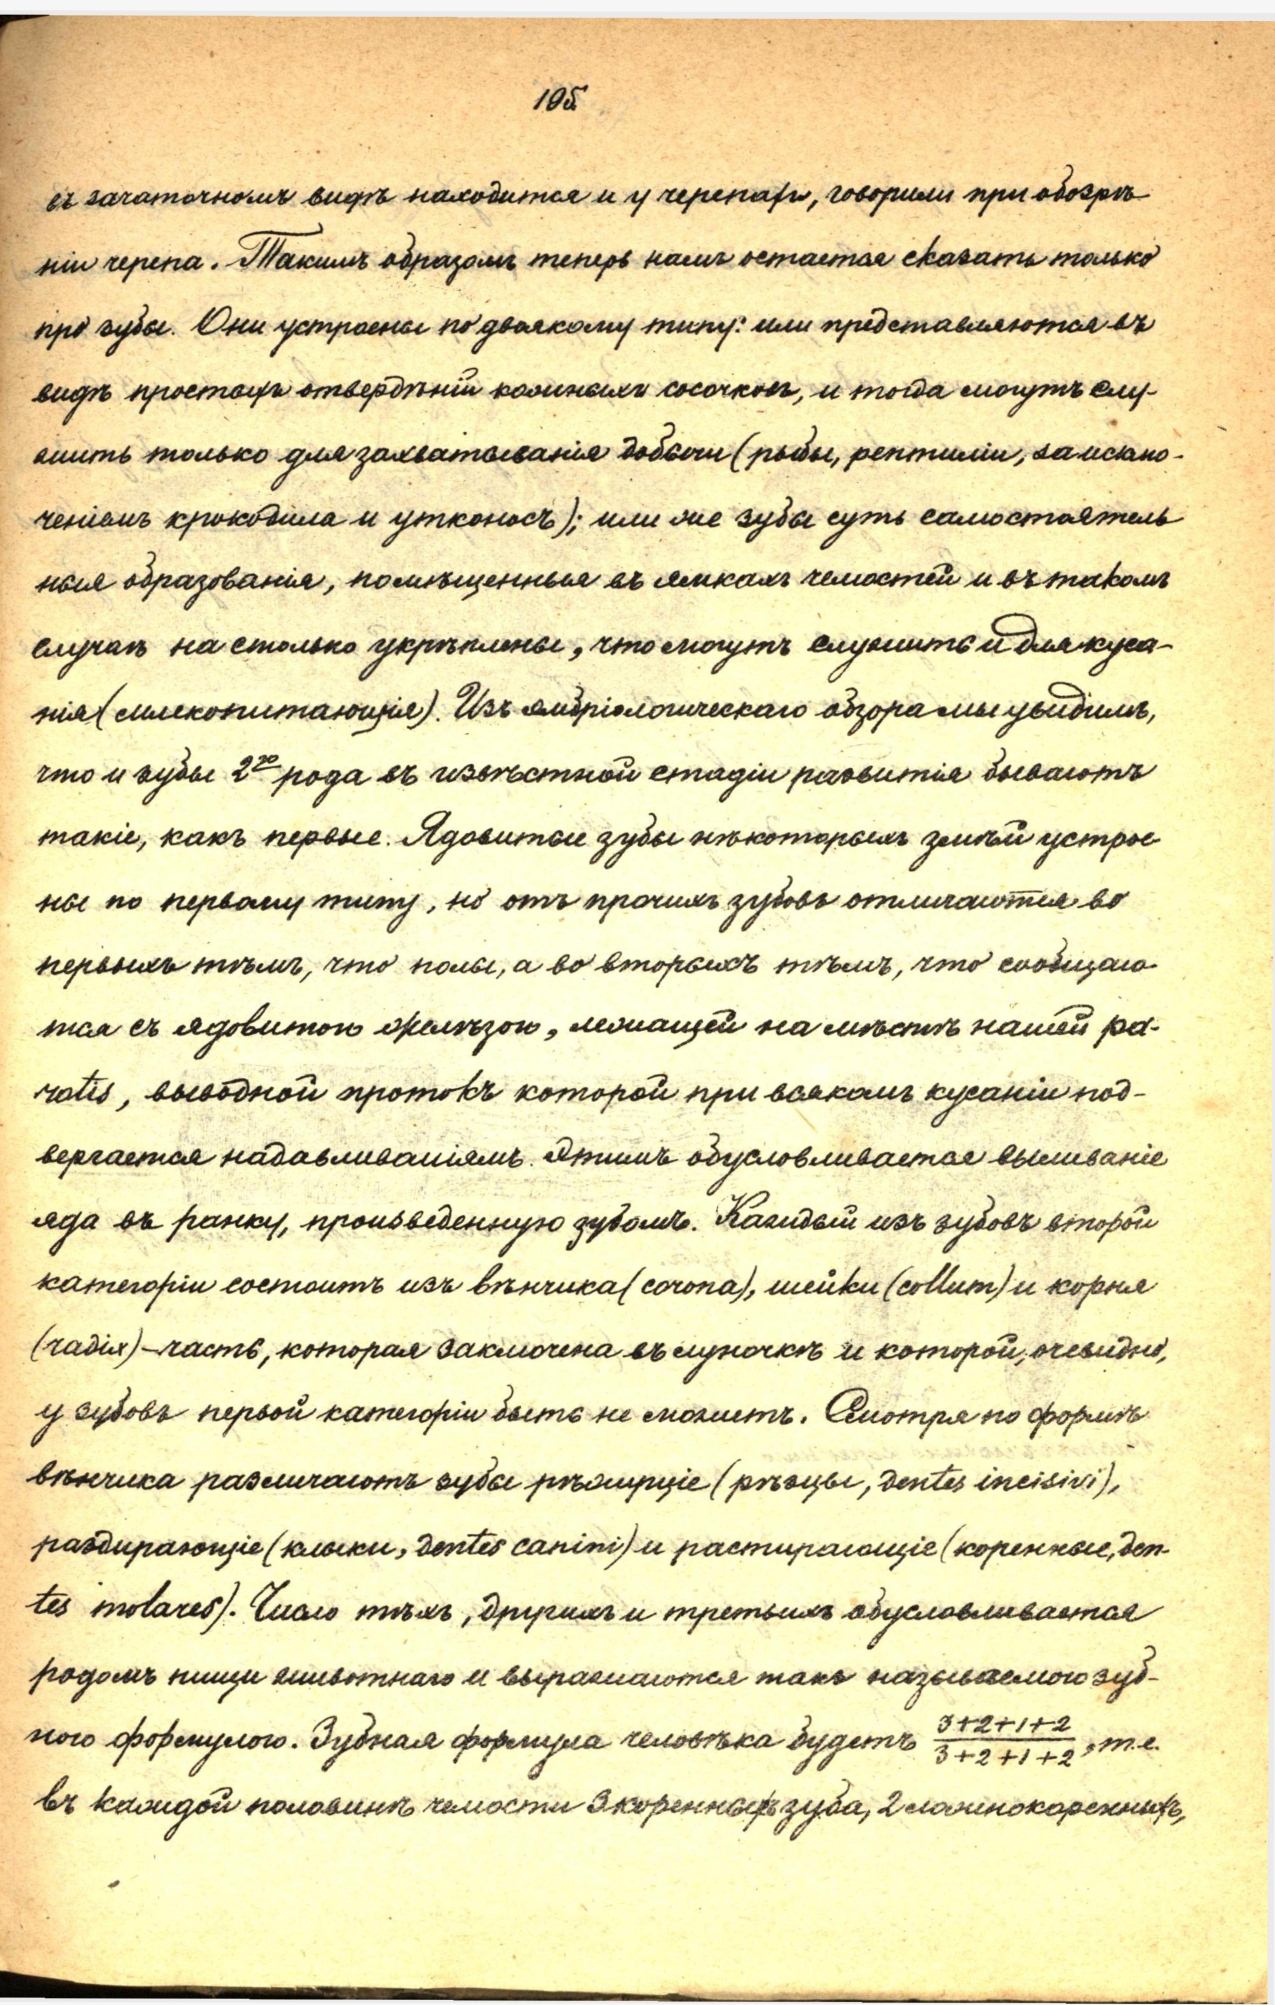 195
въ зачаточномъ видѣ находится и у черепахи, говорили при обозрѣ-
ніи черепа. Такимъ образомъ теперь намъ остается сказать только
про зубы. Они устроены по двоякому типу: или представляются въ
видѣ простыхъ отвердѣній кожныхъ сосочковъ, и тогда могутъ слу-
жить только для захватыванія добычи (рыбы, рептиліи, за исклю-
ченіемъ крокодила и утконосъ); или же зубы суть самостоятель
ныя образованія, помѣщенныя въ ямкахъ челюстей и въ такомъ
случаѣ на столько укрѣплены, что могутъ служить и для куса-
нія (млекопитающія). Изъ эмбріологическаго обзора мы увидимъ,
что и зубы 2го рода въ извѣстной стадіи развитія бываютъ
такіе, какъ первые. Ядовитые зубы нѣкоторыхъ змѣй устрое
ны по первому типу, но отъ прочихъ зубовъ отличаются во
первыхъ тѣмъ, что полы, а во вторыхъ тѣмъ, что сообщаю
тся съ ядовитою железою, лежащей на мѣстѣ нашей pa-
rotis, выводной протокъ которой при всякомъ кусаніи под-
вергается надавливаніямъ. Этимъ обусловливается выливаніе
яда въ ранку, произведенную зубомъ. Каждый изъ зубовъ второй
категоріи состоитъ изъ вѣнчика (corona), шейки (collum) и корня
(radix) – часть, которая заключена въ луночкѣ и которой, очевидно,
у зубовъ первой категоріи быть не можетъ. Смотря по формѣ
вѣнчика различаютъ зубы рѣжущіе (рѣзцы, dentes incisivi),
раздирающіе (клыки, dentes canini) и растирающіе (коренные, den-
tes molares). Число тѣхъ, другихъ и третьихъ обусловливается
родомъ пищи животнаго и выражаются такъ называемою зуб-
ною формулою. Зубная формула человѣка будетъ 3+2+1+2/3+2+1+2, т.е.
въ каждой половинѣ челюсти 3 коренныхъ зуба, 2 ложнокоренныхъ,